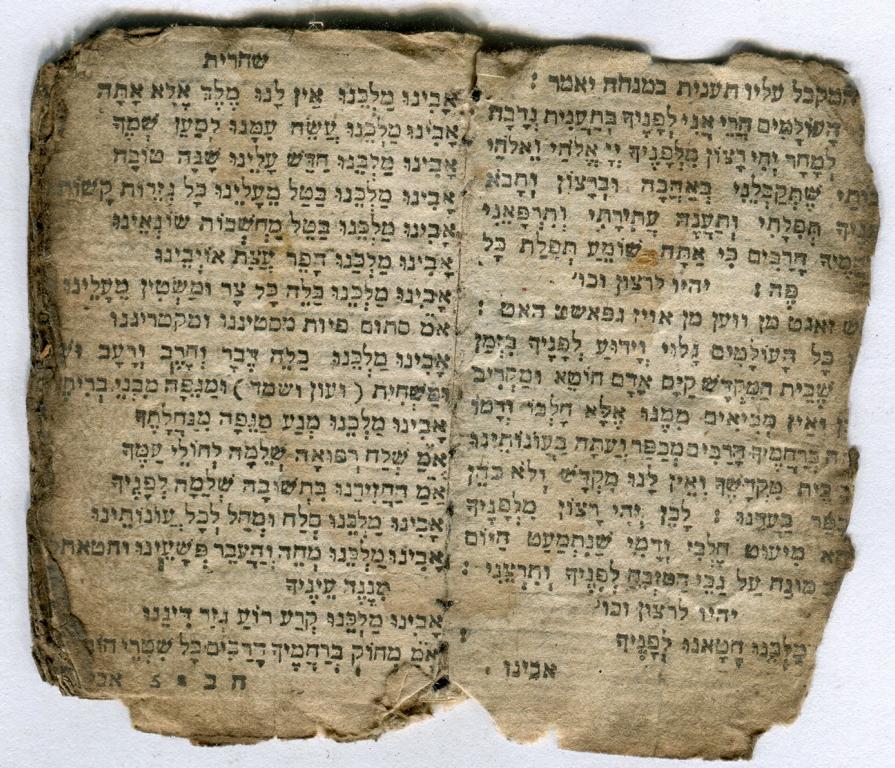 המקבל עליו תענית במנחה יאמר :
הָעוֹלָמִים הֲרֵי אֲנִי לְפָנֶיךָ בְּתַעֲנִית נְדָבָה
לְמָחָר יְהִי רָצוֹן מִלְּפָנֶיךָ יְיָ אֱלֹהַי וֵאלֹהֵי
שֶׁתְּקַבְּלֵנִי בְּאַהֲבָה וּבְרָצוֹן וְתָבֹא
תְּפִלָּתִי וְתַעֲנֶה עֲתִירָתִי וְתִרְפָּאֵנִי
הָרַבִּים כִּי אַתָּה שׁוֹמֵעַ תְּפִלַּת כָּל
פֶּה : יהיו לרצון וכו'
זאגט מן ווען מן אויז גפאשט האט :
כָּל הָעוֹלָמִים גָּלוּי וְיָדוּעַ לְפָנֶיךָ בִּזְמַן
שֶׁבֵּית הַמִּקְדָּשׁ קַיָּם אָדָם חוֹטֵא וּמַקְרִיב
וְאֵין מְבִיאִים מִמֶּנּוּ אֶלָּא חֶלְבּוֹ וְדָמוֹ
בְּרַחֲמֶיךָ הָרַבִּים מְכַפֵּר וְעַתָּה בַּעֲוֹנוֹתֵינוּ
בֵּית מִקְדָּשֶׁךָ וְאֵין לָנוּ מִקְדָּשׁ וְלֹא כֹהֵן
בַּעֲדֵנוּ : לָכֵן יְהִי רָצוֹן מִלְּפָנֶיךָ
מִיעוּט חֶלְבִּי וְדָמִי שֶׁנִּתְמַעֵט הַיּוֹם
מוּנָּח עַל גַּבֵּי הַמִּזְבֵּחַ לְפָנֶיךָ וְתִרְצֵנִי :
יהיו לרצון וכו'
מַלְכֵּנוּ חָטָאנוּ לְפָנֶיךָ :
אבינו
שחרית
אָבִינוּ מַלְכֵּנוּ אֵין לָנוּ מֶלֶךְ אֶלָּא אָתָּה
אָבִינוּ מַלְכֵּנוּ עֲשֵׂה עִמָּנוּ לְמַעַן שְׁמֶךָ
אָבִינוּ מַלְכֵּנוּ חַדֵּשׁ עָלֵינוּ שָׁנָה טוֹבָה
אָבִינוּ מַלְכֵּנוּ בַּטֵּל מֵעָלֵינוּ כָּל גְּזֵרוֹת קָשׁוֹת
אָבִינוּ מַלְכֵּנוּ בַּטֵּל מַחְשְׁבוֹת שׂוֹנְאֵינוּ
אָבִינוּ מַלְכֵּנוּ הָפֵר עֲצַת אוֹיְבֵינוּ
אָבִינוּ מַלְכֵּנוּ כַּלֵּה כָּל צַר וּמַשְׂטִין מֵעָלֵינוּ
א"מ סתום פיות מסטיננו ומקטריגנו
אָבִינוּ מַלְכֵּנוּ כַּלֵּה דֶּבֶר וְחֶרֶב וְרָעָב
וּמַשְׁחִית ( ועון ושמד ) וּמַגֵּפָה מִבְּנֵי בְרִיתֶךָ
אָבִינוּ מַלְכֵּנוּ מְנַע מַגֵּפָה מִנַּחֲלָתֶךָ
א"מ שְׁלַח רְפוּאָה שְׁלֵמָה לְחוֹלֵי עַמֶּךָ
א"מ הַחֲזִירֵנוּ בִּתְשׁוּבָה שְׁלֵמָה לְפָנֶיךָ
אָבִינוּ מַלְכֵּנוּ סְלַח וּמְחַל לְכָל עֲוֹנוֹתֵינוּ
אָבִינוּ מַלְכֵּנוּ מְחֵה וְהַעֲבֵר פְּשָׁעֵינוּ וחטאתינו
מִנֶּגֶד עֵינֶיךָ
אָבִינוּ מַלְכֵּנוּ קְרַע רוֹעַ גְּזַר דִּינֵנוּ
א"מ מְחוֹק בְּרַחֲמֶיךָ הָרַבִּים כָּל שִׁטְרֵי